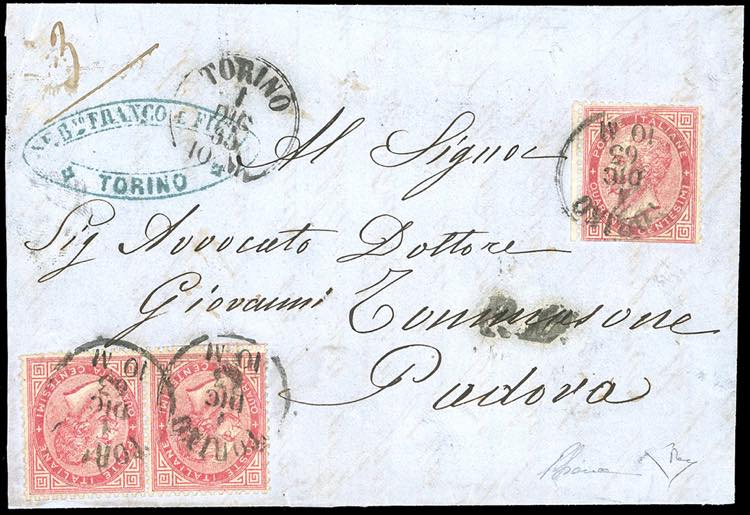 3
TORINO
1
DIC
65
10 M
FRANCO & FIGLI
TORINO
Al Signor
Sig Avvocato Dottore
Giovanni Tommasone
Padova
POSTE ITALIANE
QUARANTA CENTESIMI
TORINO
1
DIC
65
10 M
POSTE ITALIANE
QUARANTA CENTESIMI
TORINO
1
DIC
65
10 M
POSTE ITALIANE
QUARANTA CENTESIMI
TORINO
1
DIC
65
10 M